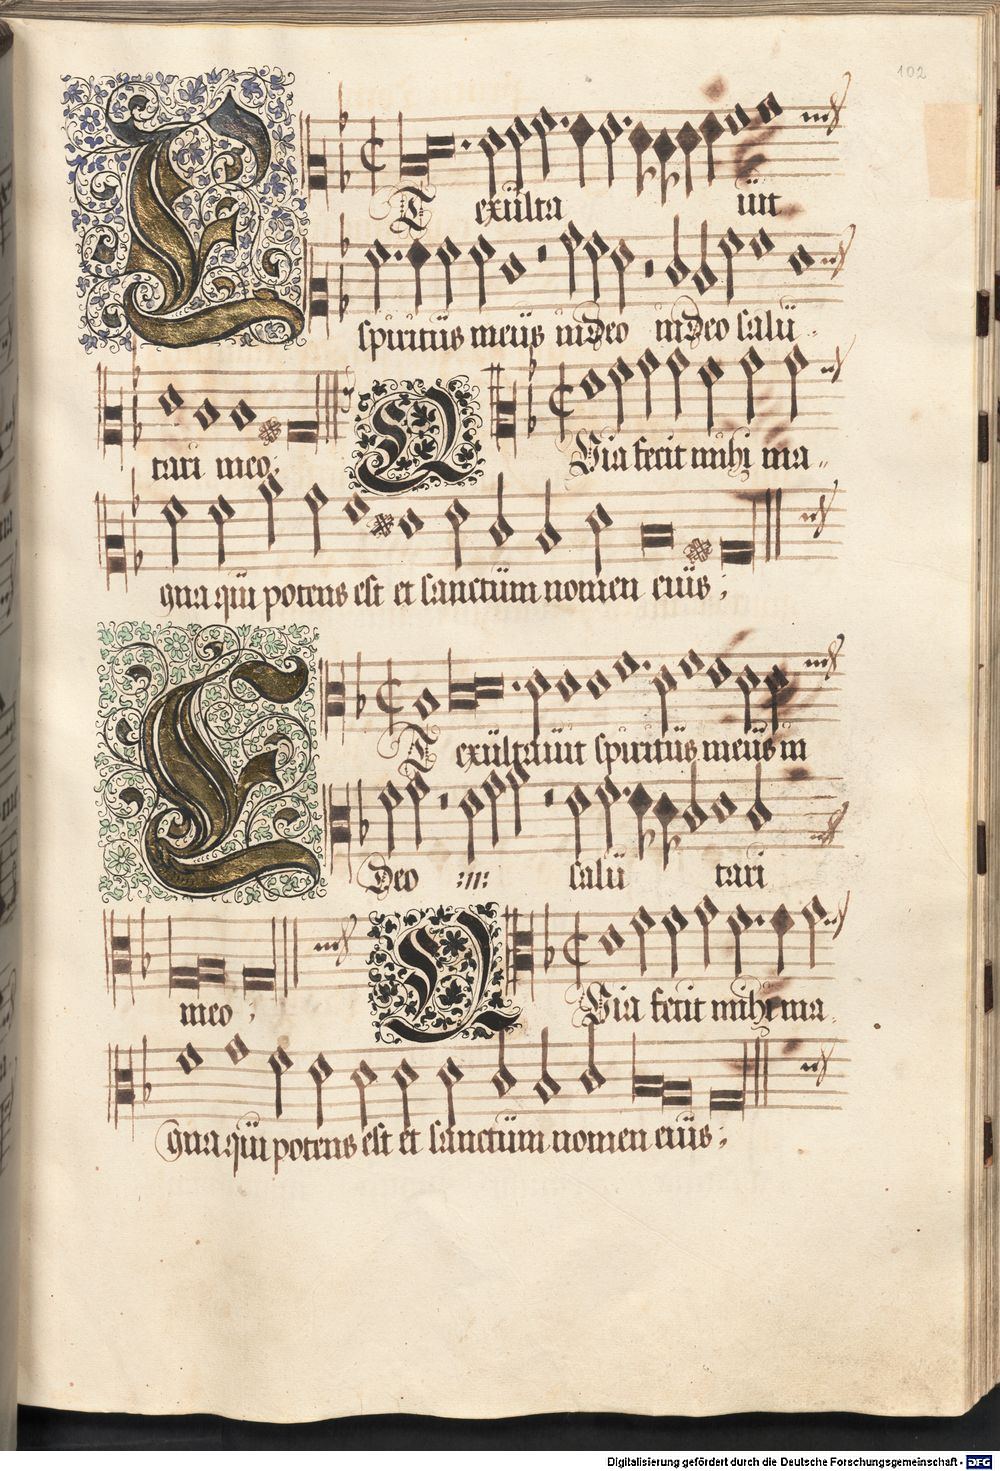 102
Et exulta uit
spiritüs meüs in deo in deo salü
tari meo;
Quia fecit mihi ma
gna qüi potens est et sanctüm nomen eiüs;
Et exültauit spiritüs meüs in
deo :n: salü tari
meo;
Quia fecit mihi ma
gna qüi potens est et sanctüm nomen eiüs;
Digitalisierung gefördert durch die Deutsche Forschungsgemeinschaft - DFG